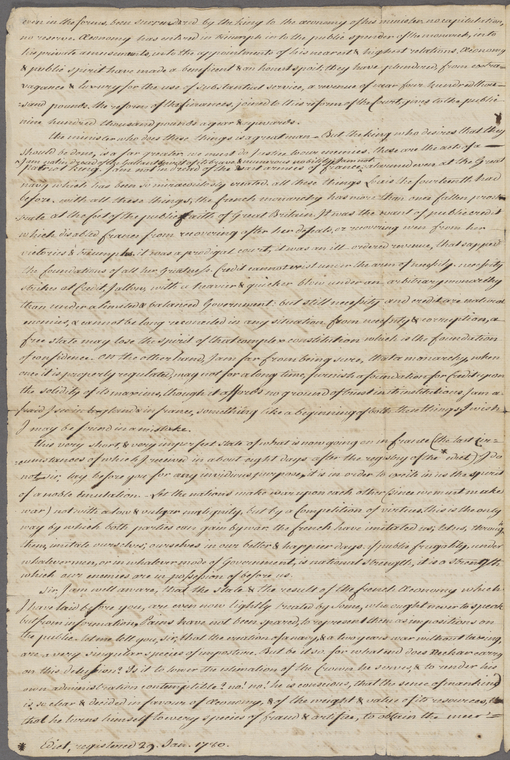 even in the forms, been surrendered by the king to the œconomy of his minister, no capitulation,
no reserve. Æconomy has entered in triumph into the public splendor of the monarch, into
his private amusements, into the appointments of his nearest & highest relations. Æconomy
& public spirit have made a beneficent & an honest spoil; they have plundered from extra-
vagance & luxury, for the use of substantial service, a revenue of near four hundred thou-
sand pounds. the reform of the finances, joined to this reform of the Court, gives to the public
nine hundred thousand pounds a year & upwards.
the minister who does these things is a great man — But the king who desires that they
should be done, is a far greater. we must do justice to our enemies. these are the acts of a
patriot king. I am not in dread of the vast armies of France,
I am not in dread of the gallant spirit of its brave & numerous nobility. I am not alarmed even at the Great
navy which has been so miraculously created. all these things Louis the fourteenth had
before. with all these things, the french monarchy has more than once fallen prostrate
at the foot of the public faith of Great Britain. It was the want of public credit
which disabled France from recovering after her defeats, or recovering even from her
victories & triumphs. it was a prodigal court, it was an ill-ordered revenue, that sapped
the foundations of all her Greatness. Credit cannot exist under the arm of necessity. necessity
strikes at Credit, I allow, with a heavier & quicker blow under an arbitrary monarchy
than under a limited & balanced Government: but still necessity and credit are natural
enemies, & cannot be long reconciled in any situation. from necessity & corruption, a
free state may lose the spirit of that complex constitution which is the foundation
of confidence. On the other hand, I am far from being sure, that a monarchy, when
once it is properly regulated, may not for a long time, furnish a foundation for Credit upon
the solidity of its maxims, though it affords no ground of trust in its institutions. I am a-
fraid I see in England & in france, something like a beginning of both these things. I wish
I may be found in a mistake.
this very short & very imperfect state of what is now going on in france (the last cir-
cumstances of which I received in about eight days after the registry of the * edict) I do
not, sir, lay before you for any invidious purpose. it is in order to excite in us the spirit
of a noble Emulation. — let the nations make war upon each other (since we must make
war) not with a low & vulgar malignity, but by a Competition of virtues. this is the only
way by which both parties can gain by war. the french have imitated us; let us, through
them, imitate ourselves; ourselves in our better & happier days. if public frugality, under
whatever men, or in whatever mode of Government, is national strength, it is a strength
which our enemies are in possession of before us.
Sir, I am well aware, that the state & the result of the french Æconomy which
I have laid before you, are even now lightly treated by some, who ought never to speak
but from information. Pains have not been spared, to represent them as impositions on
the public. let me tell you, sir, that the creation of a navy, & a two years war without taxing,
are a very singular species of imposture. But be it so. for what end does Neckar carry
on this delusion? Is it to lower the estimation of the Crown he serves, & to render his
own administration contemptible? no! no! he is conscious, that the sense of mankind
is so clear & decided in favour of Æconomy, & of the weight & value of its resources, that
that he turns himself to every species of fraud & artifice, to obtain the mere
* Edict, registered 29. Jan. 1780.